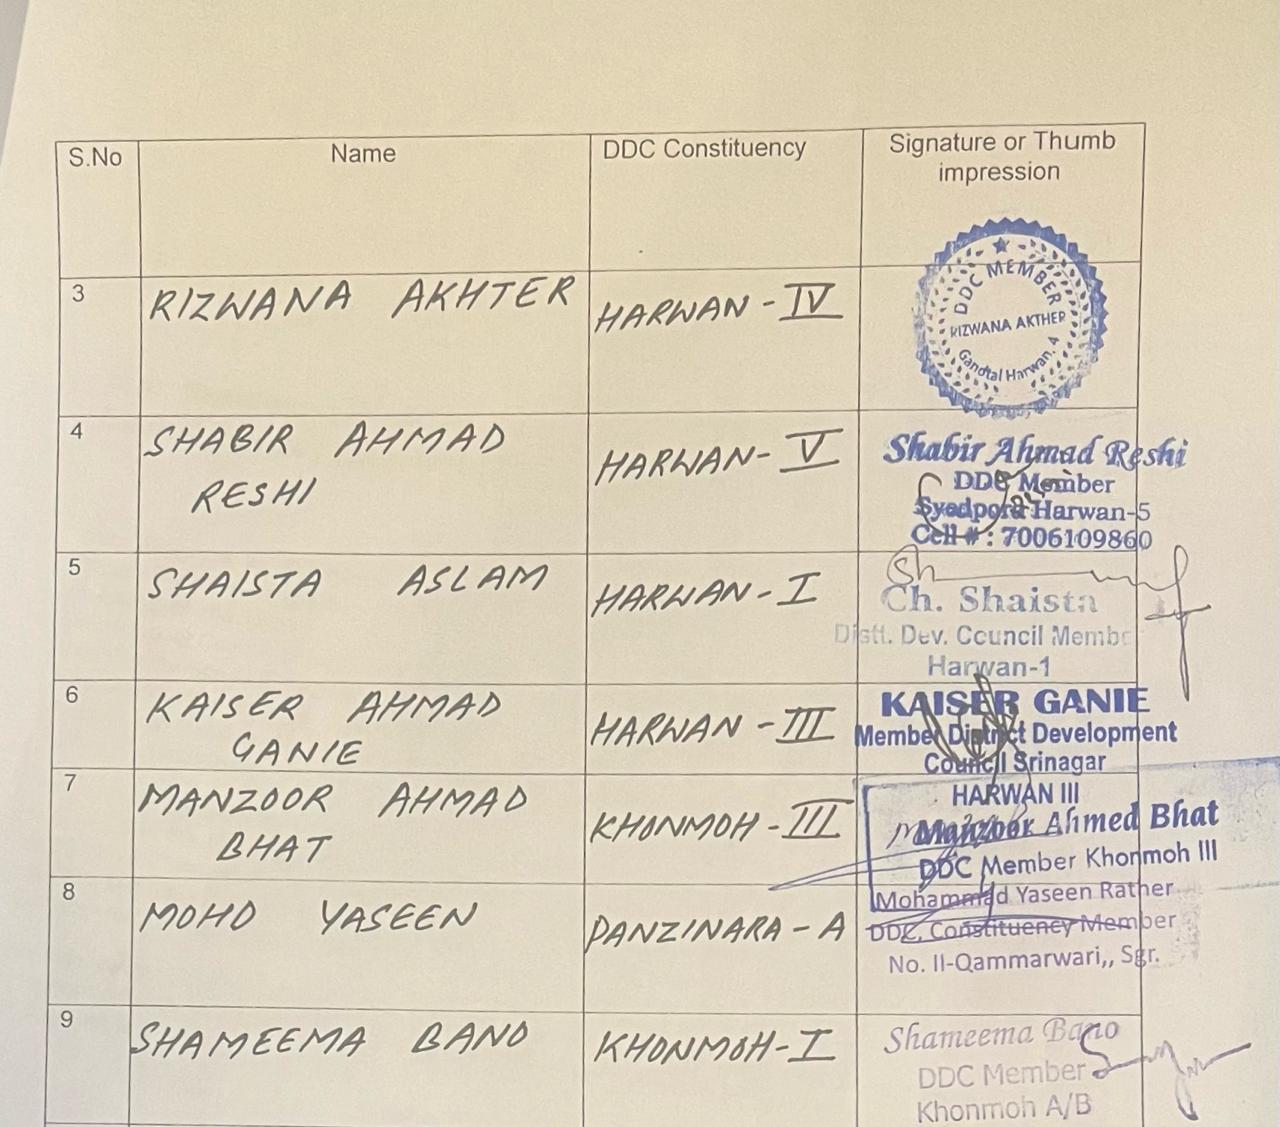 S.No Name DDC Constituency Signature or Thumb
impression
3 RIZWANA AKHTER HARWAN - IV
DDC MEMBER
RIZWANA AKTHER
Gandtal Harwan, A
4 SHABIR AHMAD HARWAN - V
RESHI
Shabir Ahmad Reshi
DDC Member
Syedpora Harwan-5
Cell # : 7006109860
5 SHAISTA ASLAM HARWAN - I
Ch. Shaista
Distt. Dev. Council Membe
Harwan-1
6 KAISER AHMAD HARWAN - III
GANIE
KAISER GANIE
Member District Development
Council Srinagar
HARWAN III
7 MANZOOR AHMAD KHONMOH - III
BHAT
Manzoor Ahmed Bhat
DDC Member Khonmoh III
8 MOHD YASEEN PANZINARA - A
Mohammad Yaseen Rather
DDC, Constituency Member
No. II-Qammarwari,, Sgr.
9 SHAMEEMA BANO KHONMOH - I
Shameema Bano
DDC Member
Khonmoh A/B